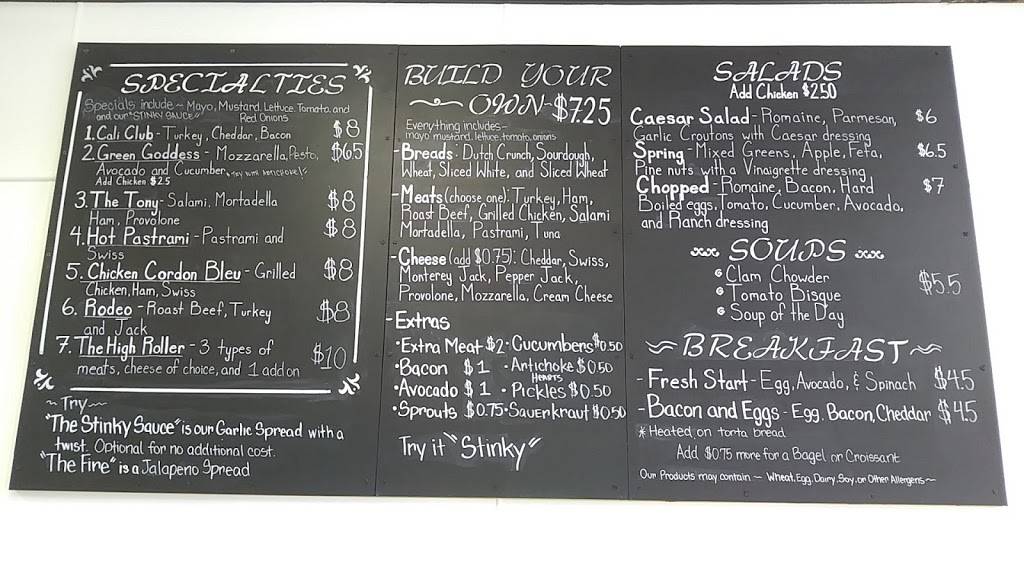 SPECIALTIES
Specials include ~ Mayo, Mustard, Lettuce, Tomato, and
and our "STINKY SAUCE" Red Onions
1. Cali Club - Turkey, Cheddar, Bacon $8
2. Green Goddess - Mozzarella, Pesto, $6.5
Avocado and Cucumber
Add Chicken $2.5
3. The Tony - Salami, Mortadella $8
Ham, Provolone
4. Hot Pastrami - Pastrami and $8
Swiss
5. Chicken Cordon Bleu - Grilled $8
Chicken, Ham, Swiss
6. Rodeo - Roast Beef, Turkey $8
and Jack
7. The High Roller - 3 types of $10
meats, cheese of choice, and 1 add on
~ Try ~
"The Stinky Sauce" is our Garlic Spread with a
twist. Optional for no additional cost.
"The Fire" is a Jalapeno Spread
BUILD YOUR
OWN - $7.25
Everything includes -
mayo, mustard, lettuce, tomato, onions
- Breads: Dutch Crunch, Sourdough,
Wheat, Sliced White, and Sliced Wheat
- Meats (choose one): Turkey, Ham,
Roast Beef, Grilled Chicken, Salami
Mortadella, Pastrami, Tuna
- Cheese (add $0.75): Cheddar, Swiss,
Monterey Jack, Pepper Jack,
Provolone, Mozzarella, Cream Cheese
- Extras
• Extra Meat $2 • Cucumbers $0.50
• Bacon $1 • Artichoke $0.50
HEARTS
• Avocado $1 • Pickles $0.50
• Sprouts $0.75 • Sauerkraut $0.50
Try it "Stinky"
SALADS
Add Chicken $2.50
Caesar Salad - Romaine, Parmesan, $6
Garlic Croutons with Caesar dressing
Spring - Mixed Greens, Apple, Feta, $6.5
Pine nuts with a Vinaigrette dressing
Chopped - Romaine, Bacon, Hard $7
Boiled eggs, Tomato, Cucumber, Avocado,
and Ranch dressing
SOUPS
Clam Chowder
Tomato Bisque $5.5
Soup of the Day
BREAKFAST
- Fresh Start - Egg, Avocado, & Spinach $4.5
- Bacon and Eggs - Egg, Bacon, Cheddar $4.5
* Heated on torta bread
Add $0.75 more for a Bagel or Croissant
Our Products may contain ~ Wheat, Egg, Dairy, Soy, or Other Allergens ~